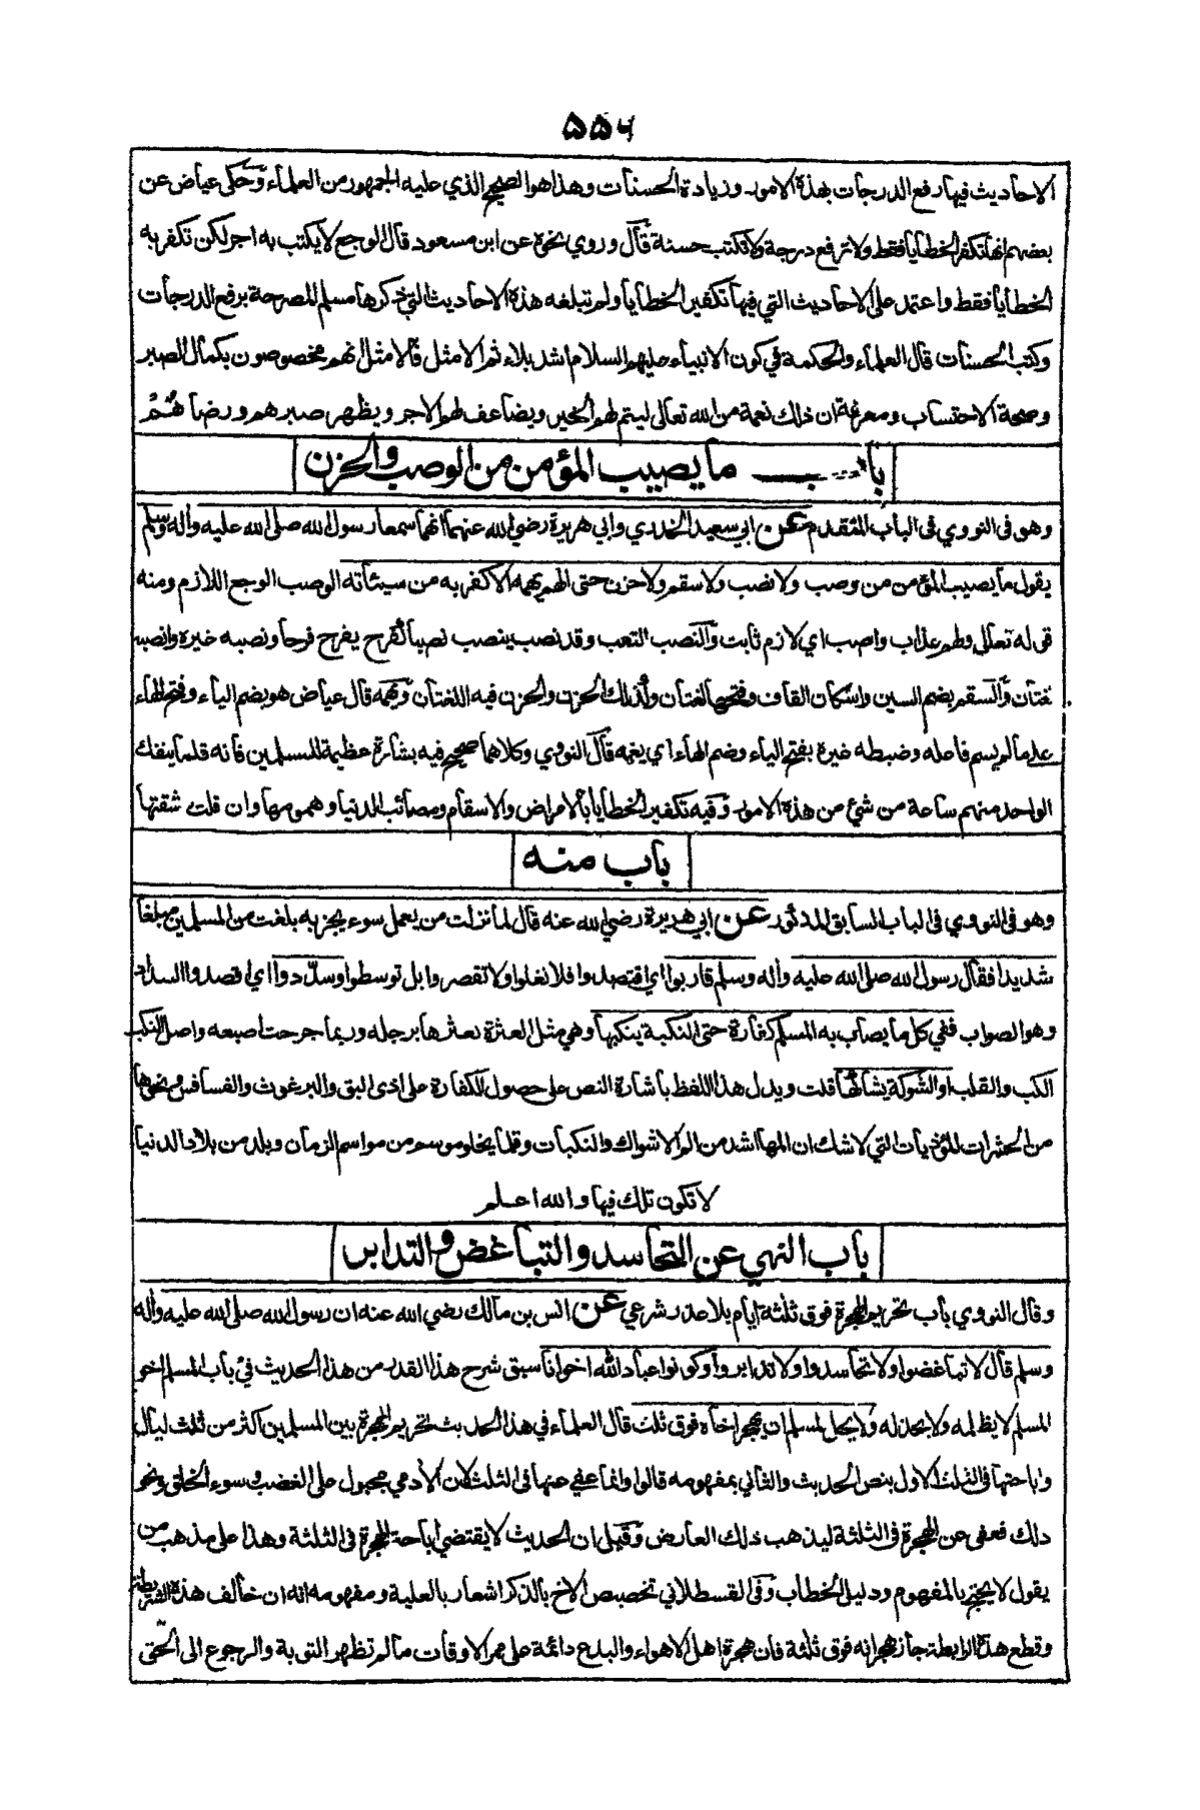 ٥٥٦
الاحاديث فيها رفع الدرجات بهذه الامور وزيادة الحسنات وهذا هو الصحيح الذي عليه الجمهور من العلماء وحكى عياض عن
بعضهم انها تكفر الخطايا فقط ولا ترفع درجة ولا تكتب حسنة قال وروي نحوه عن ابن مسعود قال الوجع لا يكتب به اجر لكن تكفر به
الخطايا فقط واعتمد على الاحاديث التي فيها تكفير الخطايا ولم تبلغه هذه الاحاديث التي ذكرها مسلم المصرحة برفع الدرجات
وكتب الحسنات قال العلماء والحكمة في كون الانبياء عليهم السلام اشد بلاء ثم الامثل فالامثل انهم مخصوصون بكمال الصبر
وصحة الاحتساب ومعرفة ان ذلك نعمة من الله تعالى ليتم لهم الخير ويضاعف لهم الاجر ويظهر صبرهم ورضاهم
باب ما يصيب المؤمن من الوصب والحزن
وهو في النووي في الباب المتقدم عن ابي سعيد الخدري وابي هريرة رضي الله عنهما انهما سمعا رسول الله صلى الله عليه وأله وسلم
يقول ما يصيب المؤمن من وصب ولا نصب ولا سقم ولا حزن حتى الهم يهمه الا كفر به من سيئاته الوصب الوجع اللازم ومنه
قوله تعالى ولهم عذاب واصب اي لازم ثابت والنصب التعب وقد نصب ينصب نصبا كفرح يفرح فرحا ونصبه غيره وانصبه
لغتان والسقم بضم السين واسكان القاف وفتحهما لغتان وكذلك الحزن والحزن فيه اللغتان ويهمه قال عياض هو بضم الياء وفتح الهاء
على ما لم يسم فاعله وضبطه غيره بفتح الياء وضم الهاء اي يغمه قال النووي وكلاهما صحيح فيه بشارة عظيمة للمسلمين فانه قلما ينفك
الواحد منهم ساعة من شئ من هذه الامور وفيه تكفير الخطايا بالامراض والاسقام ومصائب الدنيا وهمومها وان قلت مشقتها
باب منه
وهو في النووي في الباب السابق المذكور عن ابي هريرة رضي الله عنه قال لما نزلت من يعمل سوء يجز به بلغت من المسلمين مبلغا
شديدا فقال رسول الله صلى الله عليه وأله وسلم قاربوا اي اقتصدوا فلا تغلوا ولا تقصروا بل توسطوا وسددوا اي اقصدوا السداد
وهو الصواب ففي كل ما يصاب به المسلم كفارة حتى النكبة ينكبها وهي مثل العثرة يعثرها برجله وربما جرحت اصبعه واصل النكب
الكب والقلب او الشوكة يشاكها قلت ويدل هذا اللفظ باشارة النص على حصول الكفارة على اذى البق والبرغوث والفسافس ونحوها
من الحشرات المؤذيات التي لا شك ان المها اشد من الم الاشواك والنكبات وقلما يخلو موسم من مواسم الزمان وبلد من بلاد الدنيا
لا تكون تلك فيها والله اعلم
باب النهي عن التحاسد والتباغض والتدابر
وقال النووي باب تحريم الهجرة فوق ثلثة ايام بلا عذر شرعي عن انس بن مالك رضي الله عنه ان رسول الله صلى الله عليه وأله
وسلم قال لا تباغضوا ولا تحاسدوا ولا تدابروا وكونوا عباد الله اخوانا سبق شرح هذا القدر من هذا الحديث في باب المسلم اخو
المسلم لا يظلمه ولا يخذله ولا يحل لمسلم ان يهجر اخاه فوق ثلث قال العلماء في هذا الحديث تحريم الهجرة بين المسلمين اكثر من ثلث ليال
واباحتها في الثلث الاول بنص الحديث والثاني بمفهومه قالوا وانما عفي عنها في الثلث لان الأدمي مجبول على الغضب وسوء الخلق ونحو
ذلك فعفى عن الهجرة في الثلثة ليذهب ذلك العارض وقيل ان الحديث لا يقتضي اباحة الهجرة في الثلثة وهذا على مذهب من
يقول لا يحتج بالمفهوم ودليل الخطاب وفي القسطلاني تخصيص الاخ بالذكر اشعار بالعلية ومفهومه انه ان خالف هذه الشريطة
وقطع هذه الرابطة جاز هجرانه فوق ثلثة فان هجرة اهل الاهواء والبدع دائمة على ممر الاوقات ما لم تظهر التوبة والرجوع الى الحق